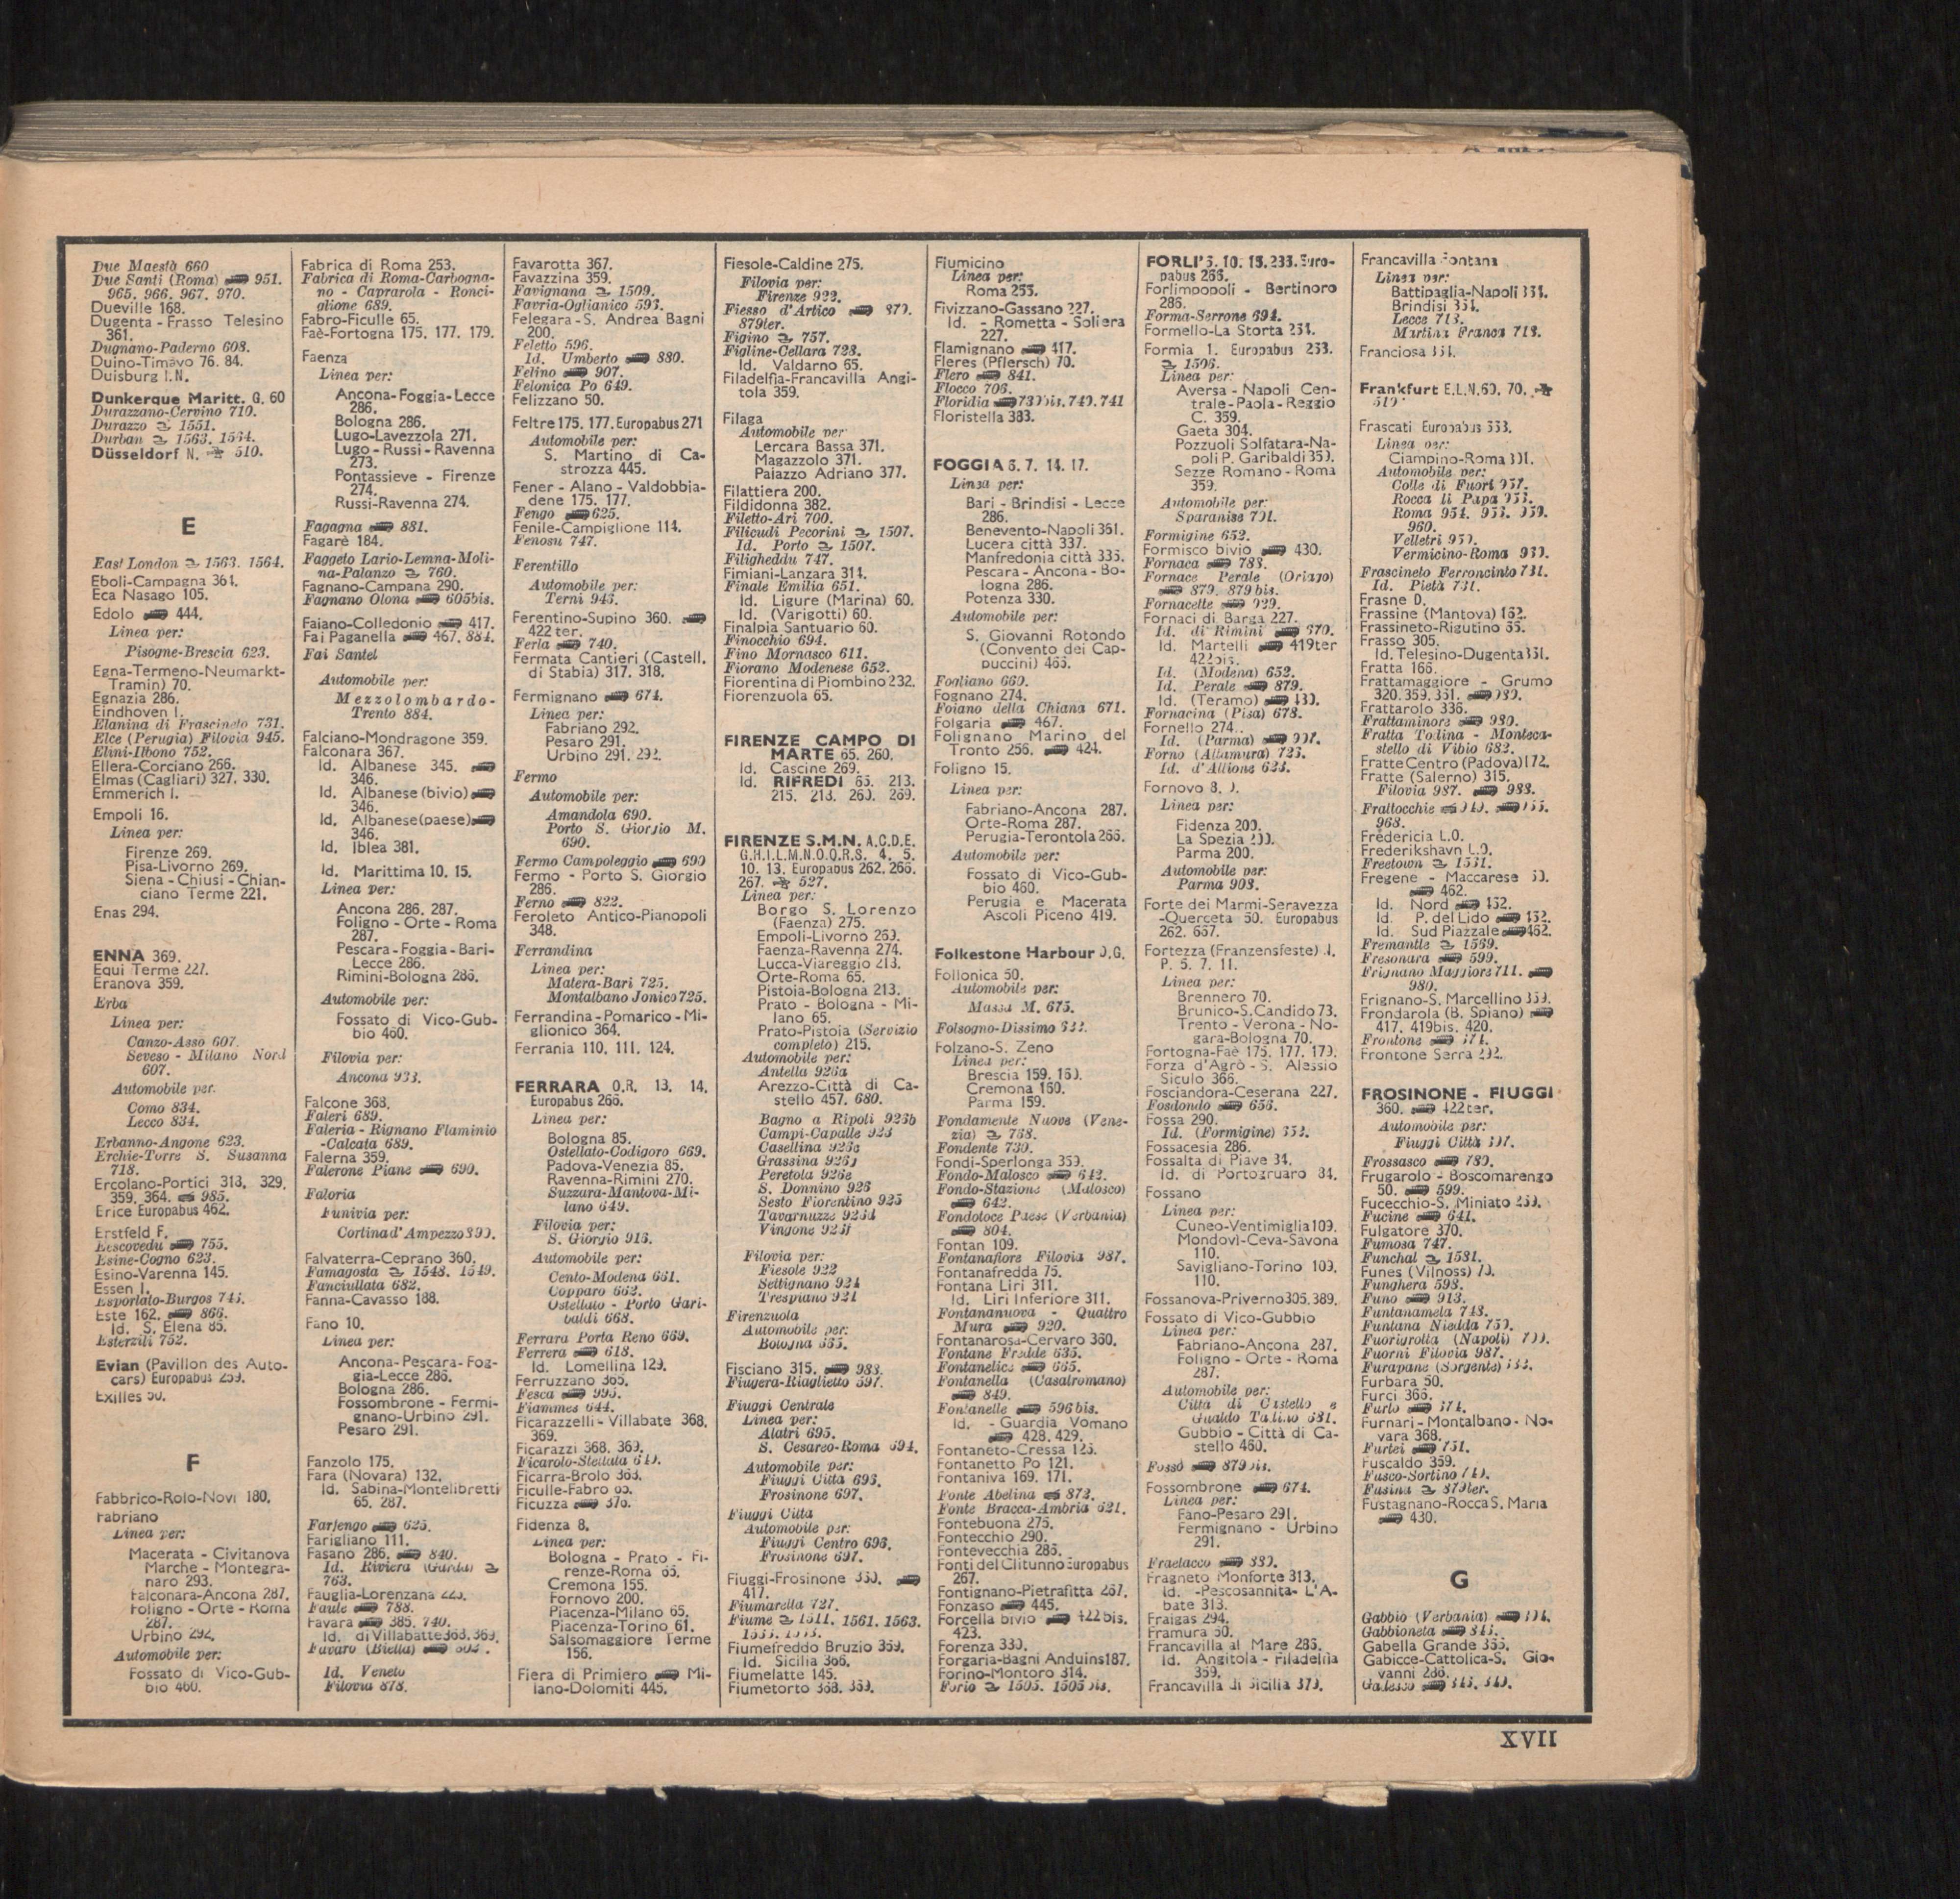 Due Maestà 660
Due Santi (Roma) 951.
965. 966. 967. 970.
Dueville 168.
Dugenta - Frasso Telesino
361.
Dugnano-Paderno 608.
Duino-Timavo 76. 84.
Duisburg I.N.
Dunkerque Maritt. G. 60
Durazzano-Cervino 710.
Durazzo 1551.
Durban 1563. 1564.
Düsseldorf N. 510.
E
East London 1563. 1564.
Eboli-Campagna 364.
Eca Nasago 105.
Edolo 444.
Linea per:
Pisogne-Brescia 623.
Egna-Termeno-Neumarkt-
Tramin) 70.
Egnazia 286.
Eindhoven I.
Elanina di Frascineto 731.
Elce (Perugia) Filovia 945.
Elini-Ilbono 752.
Ellera-Corciano 266.
Elmas (Cagliari) 327. 330.
Emmerich I.
Empoli 16.
Linea per:
Firenze 269.
Pisa-Livorno 269.
Siena - Chiusi - Chian-
ciano Terme 221.
Enas 294.
ENNA 369.
Equi Terme 227.
Eranova 359.
Erba
Linea per:
Canzo-Asso 607.
Seveso - Milano Nord
607.
Automobile per.
Como 834.
Lecco 834.
Erbanno-Angone 623.
Erchie-Torre S. Susanna
718.
Ercolano-Portici 313. 329.
359. 364. 985.
Erice Europabus 462.
Erstfeld F.
Escovedu 755.
Esine-Cogno 623.
Esino-Varenna 145.
Essen I.
Esporlato-Burgos 746.
Este 162. 866.
Id. S. Elena 85.
Esterzili 752.
Evian (Pavillon des Auto-
cars) Europabus 259.
Exilles 50.
F
Fabbrico-Rolo-Novi 180.
Fabriano
Linea per:
Macerata - Civitanova
Marche - Montegra-
naro 293.
Falconara-Ancona 287.
Foligno - Orte - Roma
287.
Urbino 292.
Automobile per:
Fossato di Vico-Gub-
bio 460.
Fabrica di Roma 253.
Fabrica di Roma-Carbogna-
no - Caprarola - Ronci-
glione 689.
Fabro-Ficulle 65.
Faè-Fortogna 175. 177. 179.
Faenza
Linea per:
Ancona-Foggia-Lecce
286.
Bologna 286.
Lugo-Lavezzola 271.
Lugo - Russi - Ravenna
273.
Pontassieve - Firenze
274.
Russi-Ravenna 274.
Fagagna 881.
Fagarè 184.
Faggeto Lario-Lemna-Moli-
na-Palanzo 760.
Fagnano-Campana 290.
Fagnano Olona 605bis.
Faiano-Colledonio 417.
Fai Paganella 467. 884.
Fai Santel
Automobile per:
Mezzolombardo-
Trento 884.
Falciano-Mondragone 359.
Falconara 367.
Id. Albanese 345.
346.
Id. Albanese (bivio)
346.
Id. Albanese(paese)
346.
Id. Iblea 381.
Id. Marittima 10. 15.
Linea per:
Ancona 286. 287.
Foligno - Orte - Roma
287.
Pescara - Foggia - Bari-
Lecce 286.
Rimini-Bologna 286.
Automobile per:
Fossato di Vico-Gub-
bio 460.
Filovia per:
Ancona 933.
Falcone 368.
Faleri 689.
Faleria - Rignano Flaminio
-Calcata 689.
Falerna 359.
Falerone Piane 690.
Faloria
Funivia per:
Cortina d'Ampezzo 890.
Falvaterra-Ceprano 360.
Famagosta 1548. 1549.
Fanciullata 682.
Fanna-Cavasso 188.
Fano 10.
Linea per:
Ancona - Pescara - Fog-
gia-Lecce 286.
Bologna 286.
Fossombrone - Fermi-
gnano-Urbino 291.
Pesaro 291.
Fanzolo 175.
Fara (Novara) 132.
Id. Sabina-Montelibretti
65. 287.
Farfengo 625.
Farigliano 111.
Fasano 286. 840.
Id. Riviera (Garda)
763.
Fauglia-Lorenzana 225.
Faule 788.
Favara 385. 740.
Id. di Villabatte 368. 369.
Favaro (Biella) 802.
Id. Veneto
Filovia 878.
Favarotta 367.
Favazzina 359.
Favignana 1509.
Favria-Oglianico 593.
Felegara-S. Andrea Bagni
200.
Feletto 596.
Id. Umberto 880.
Felino 907.
Felonica Po 649.
Felizzano 50.
Feltre 175. 177. Europabus 271
Automobile per:
S. Martino di Ca-
strozza 445.
Fener - Alano - Valdobbia-
dene 175. 177.
Fengo 625.
Fenile-Campiglione 114.
Fenosu 747.
Ferentillo
Automobile per:
Terni 946.
Ferentino-Supino 360.
422 ter.
Ferla 740.
Fermata Cantieri (Castell.
di Stabia) 317. 318.
Fermignano 674.
Linea per:
Fabriano 292.
Pesaro 291.
Urbino 291. 292.
Fermo
Automobile per:
Amandola 690.
Porto S. Giorgio M.
690.
Fermo Campoleggio 690
Fermo - Porto S. Giorgio
286.
Ferno 822.
Feroleto Antico-Pianopoli
348.
Ferrandina
Linea per:
Matera-Bari 725.
Montalbano Jonico 725.
Ferrandina - Pomarico - Mi-
glionico 364.
Ferrania 110. 111. 124.
FERRARA O.R. 13. 14.
Europabus 266.
Linea per:
Bologna 85.
Ostellato-Codigoro 669.
Padova-Venezia 85.
Ravenna-Rimini 270.
Suzzara-Mantova-Mi-
lano 649.
Filovia per:
S. Giorgio 916.
Automobile per:
Cento-Modena 661.
Copparo 662.
Ostellato - Porto Gari-
baldi 668.
Ferrara Porta Reno 669.
Ferrera 618.
Id. Lomellina 129.
Ferruzzano 365.
Fesca 995.
Fiammes 644.
Ficarazzelli - Villabate 368.
369.
Ficarazzi 368. 369.
Ficarolo-Stellata 649.
Ficarra-Brolo 368.
Ficulle-Fabro 65.
Ficuzza 376.
Fidenza 8.
Linea per:
Bologna - Prato - Fi-
renze-Roma 65.
Cremona 155.
Fornovo 200.
Piacenza-Milano 65.
Piacenza-Torino 61.
Salsomaggiore Terme
156.
Fiera di Primiero Mi-
lano-Dolomiti 445.
Fiesole-Caldine 275.
Filovia per:
Firenze 922.
Fiesso d'Artico 879.
879ter.
Figino 757.
Figline-Cellara 728.
Id. Valdarno 65.
Filadelfia-Francavilla Angi-
tola 359.
Filaga
Automobile per
Lercara Bassa 371.
Magazzolo 371.
Palazzo Adriano 377.
Filattiera 200.
Fildidonna 382.
Filetto-Ari 700.
Filicudi Pecorini 1507.
Id. Porto 1507.
Filigheddu 747.
Fimiani-Lanzara 314.
Finale Emilia 651.
Id. Ligure (Marina) 60.
Id. (Varigotti) 60.
Finalpia Santuario 60.
Finocchio 694.
Fino Mornasco 611.
Fiorano Modenese 652.
Fiorentina di Piombino 232.
Fiorenzuola 65.
FIRENZE CAMPO DI
MARTE 65. 260.
Id. Cascine 269.
Id. RIFREDI 65. 213.
215. 218. 260. 269.
FIRENZE S.M.N. A.C.D.E.
G.H.I.L.M.N.O.Q.R.S. 4. 5.
10. 13. Europabus 262. 266.
267. 527.
Linea per:
Borgo S. Lorenzo
(Faenza) 275.
Empoli-Livorno 269.
Faenza-Ravenna 274.
Lucca-Viareggio 218.
Orte-Roma 65.
Pistoia-Bologna 213.
Prato - Bologna - Mi-
lano 65.
Prato-Pistoia (Servizio
completo) 215.
Automobile per:
Antella 926a
Arezzo-Città di Ca-
stello 457. 680.
Bagno a Ripoli 926b
Campi-Capalle 923
Casellina 926c
Grassina 926g
Peretola 926e
S. Donnino 926
Sesto Fiorentino 925
Tavarnuzze 926d
Vingone 926f
Filovia per:
Fiesole 922
Settignano 924
Trespiano 921
Firenzuola
Automobile per:
Bologna 665.
Fisciano 315. 988.
Fiugera-Riaglietto 597.
Fiuggi Centrale
Linea per:
Alatri 695.
S. Cesareo-Roma 694.
Automobile per:
Fiuggi Città 696.
Frosinone 697.
Fiuggi Città
Automobile per:
Fiuggi Centro 696.
Frosinone 697.
Fiuggi-Frosinone 360.
417.
Fiumarella 727.
Fiume 1511. 1561. 1563.
Fiumefreddo Bruzio 359.
Id. Sicilia 366.
Fiumelatte 145.
Fiumetorto 368. 369.
Fiumicino
Linea per:
Roma 253.
Fivizzano-Gassano 227.
Id. - Rometta - Soliera
227.
Flamignano 417.
Fleres (Pflersch) 70.
Flero 841.
Flocco 706.
Floridia 739bis. 740. 741
Floristella 383.
FOGGIA 6. 7. 14. 17.
Linea per:
Bari - Brindisi - Lecce
286.
Benevento-Napoli 361.
Lucera città 337.
Manfredonia città 336.
Pescara - Ancona - Bo-
logna 286.
Potenza 330.
Automobile per:
S. Giovanni Rotondo
(Convento dei Cap-
puccini) 465.
Fogliano 660.
Fognano 274.
Foiano della Chiana 671.
Folgaria 467.
Folignano Marino del
Tronto 256. 424.
Foligno 15.
Linea per:
Fabriano-Ancona 287.
Orte-Roma 287.
Perugia-Terontola 266.
Automobile per:
Fossato di Vico-Gub-
bio 460.
Perugia e Macerata
Ascoli Piceno 419.
Folkestone Harbour O.G.
Follonica 50.
Automobile per:
Massa M. 675.
Folsogno-Dissimo 632.
Folzano-S. Zeno
Linea per:
Brescia 159. 160.
Cremona 160.
Parma 159.
Fondamente Nuove (Vene-
zia) 768.
Fondente 730.
Fondi-Sperlonga 359.
Fondo-Malosco 642.
Fondo-Stazione (Malosco)
642.
Fondotoce Paese (Verbania)
804.
Fontan 109.
Fontanafiore Filovia 987.
Fontanafredda 75.
Fontana Liri 311.
Id. Liri Inferiore 311.
Fontananuova - Quattro
Mura 920.
Fontanarosa-Cervaro 360.
Fontane Fredde 635.
Fontanelice 665.
Fontanella (Casalromano)
849.
Fontanelle 596bis.
Id. - Guardia Vomano
428. 429.
Fontaneto-Cressa 126.
Fontanetto Po 121.
Fontaniva 169. 171.
Fonte Abelina 872.
Fonte Bracca-Ambria 621.
Fontebuona 275.
Fontecchio 290.
Fontevecchia 286.
Fonti del Clitunno Europabus
267.
Fontignano-Pietrafitta 267.
Fonzaso 445.
Forcella bivio 422bis.
423.
Forenza 330.
Forgaria-Bagni Anduins 187.
Forino-Montoro 314.
Forio 1505. 1505bis.
FORLI' 6. 10. 15. 233. Euro-
pabus 266.
Forlimpopoli - Bertinoro
286.
Forma-Serrone 694.
Formello-La Storta 254.
Formia 1. Europabus 253.
1506.
Linea per:
Aversa - Napoli Cen-
trale-Paola - Reggio
C. 359.
Gaeta 304.
Pozzuoli Solfatara-Na-
poli P. Garibaldi 359.
Sezze Romano - Roma
359.
Automobile per:
Sparanise 701.
Formigine 652.
Formisco bivio 430.
Fornaca 788.
Fornace Perale (Oriago)
879. 879bis.
Fornacette 929.
Fornaci di Barga 227.
Id. di Rimini 670.
Id. Martelli 419ter
422bis.
Id. (Modena) 652.
Id. Perale 879.
Id. (Teramo) 430.
Fornacina (Pisa) 678.
Fornello 274.
Id. (Parma) 907.
Forno (Altamura) 723.
Id. d'Allione 623.
Fornovo 8. 9.
Linea per:
Fidenza 200.
La Spezia 200.
Parma 200.
Automobile per:
Parma 908.
Forte dei Marmi-Seravezza
-Querceta 50. Europabus
262. 657.
Fortezza (Franzensfeste) N.
P. 5. 7. 11.
Linea per:
Brennero 70.
Brunico-S.Candido 73.
Trento - Verona - No-
gara-Bologna 70.
Fortogna-Faè 175. 177. 179.
Forza d'Agrò - S. Alessio
Siculo 366.
Fosciandora-Ceserana 227.
Fosdondo 656.
Fossa 290.
Id. (Formigine) 652.
Fossacesia 286.
Fossalta di Piave 84.
Id. di Portogruaro 84.
Fossano
Linea per:
Cuneo-Ventimiglia 109.
Mondovì-Ceva-Savona
110.
Savigliano-Torino 109.
110.
Fossanova-Priverno 305. 389.
Fossato di Vico-Gubbio
Linea per:
Fabriano-Ancona 287.
Foligno - Orte - Roma
287.
Automobile per:
Città di Castello e
Gualdo Tadino 681.
Gubbio - Città di Ca-
stello 460.
Fossò 879bis.
Fossombrone 674.
Linea per:
Fano-Pesaro 291.
Fermignano - Urbino
291.
Fraelacco 880.
Fragneto Monforte 313.
Id. -Pescosannita- L'A-
bate 313.
Fraigas 294.
Framura 50.
Francavilla al Mare 286.
Id. Angitola - Filadelfia
359.
Francavilla di Sicilia 379.
Francavilla Fontana
Linea per:
Battipaglia-Napoli 334.
Brindisi 334.
Lecce 718.
Martina Franca 718.
Franciosa 334.
Frankfurt E.L.N. 60. 70.
510
Frascati Europabus 353.
Linea per:
Ciampino-Roma 301.
Automobile per:
Colle di Fuori 957.
Rocca di Papa 953.
Roma 954. 953. 959.
960.
Velletri 959.
Vermicino-Roma 960.
Frascineto Ferroncinto 731.
Id. Pietà 731.
Frasne D.
Frassine (Mantova) 162.
Frassineto-Rigutino 65.
Frasso 305.
Id. Telesino-Dugenta 361.
Fratta 166.
Frattamaggiore - Grumo
320. 359. 361. 980.
Frattarolo 336.
Frattaminore 980.
Fratta Todina - Monteca-
stello di Vibio 682.
Fratte Centro (Padova) 172.
Fratte (Salerno) 315.
Filovia 987. 988.
Frattocchie
968.
Fredericia L.O.
Frederikshavn L.O.
Freetown 1531.
Fregene - Maccarese 50.
462.
Id. Nord 462.
Id. P. del Lido 462.
Id. Sud Piazzale 462.
Fremantle 1569.
Fresonara 599.
Frignano Maggiore 711.
980.
Frignano-S. Marcellino 359.
Frondarola (B. Spiano)
417. 419bis. 420.
Frontone 674.
Frontone Serra 292.
FROSINONE - FIUGGI
360. 422ter.
Automobile per:
Fiuggi Città 697.
Frossasco 789.
Frugarolo - Boscomarengo
50. 599.
Fucecchio-S. Miniato 269.
Fucine 641.
Fulgatore 370.
Fumosa 747.
Funchal 1531.
Funes (Vilnoss) 70.
Funghera 598.
Funo 913.
Funtanamela 748.
Funtana Niedda 750.
Fuorigrotta (Napoli)
Fuorni Filovia 987.
Furapane (Sorgente)
Furbara 50.
Furci 366.
Furlo 674.
Furnari - Montalbano - No-
vara 368.
Furtei 751.
Fuscaldo 359.
Fusco-Sortino 740.
Fusina 879ter.
Fustagnano-Rocca S. Maria
430.
G
Gabbio (Verbania) 804.
Gabbioneta 846.
Gabella Grande 355.
Gabicce-Cattolica-S. Gio-
vanni 286.
Gadesco
XVII